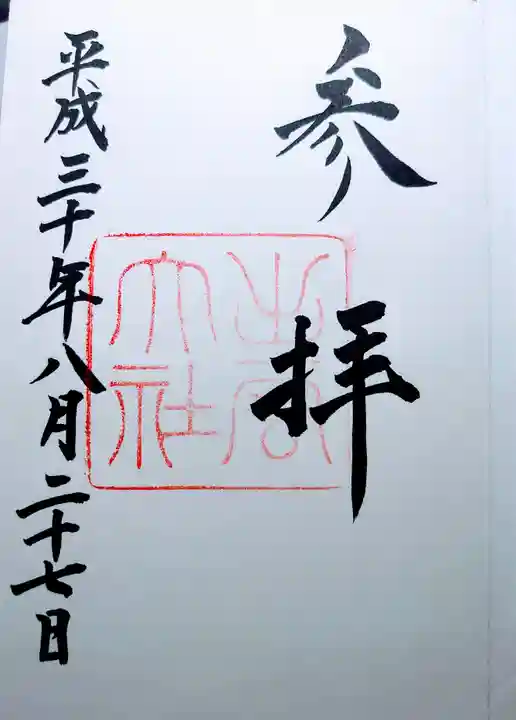 参拝
出雲大社
平成三十年八月二十七日